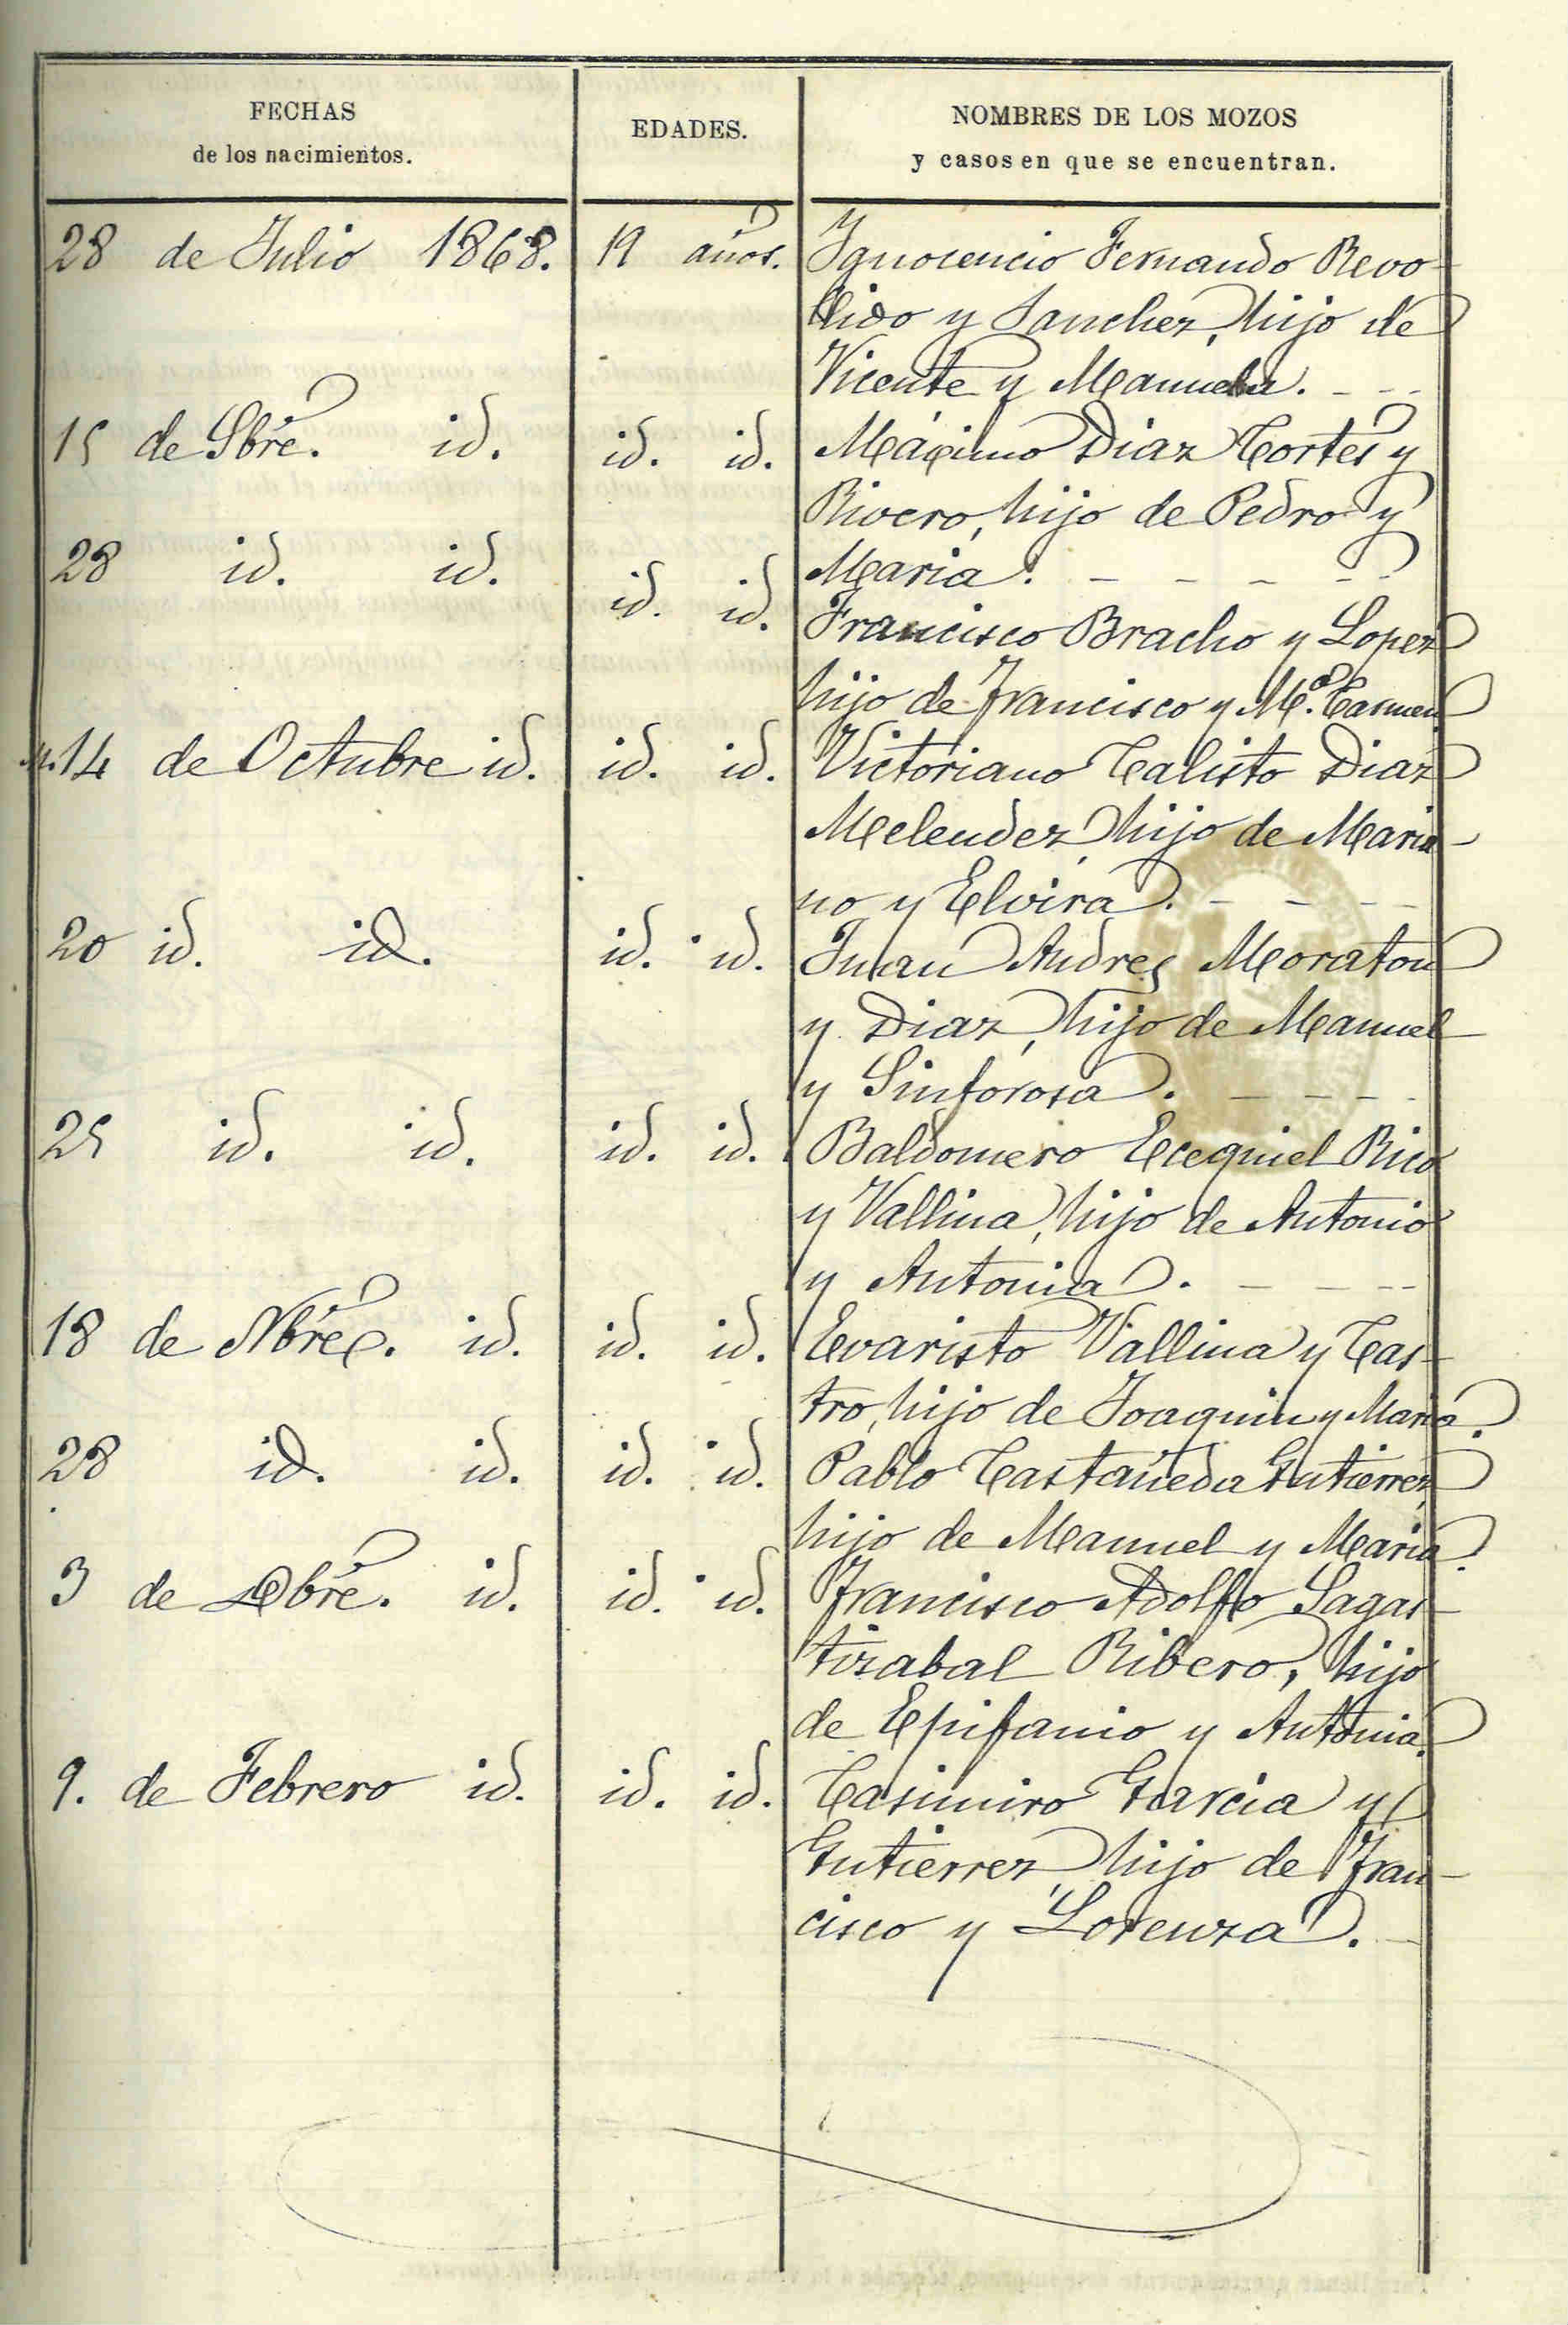 FECHAS
de los nacimientos.
EDADES.
NOMBRES DE LOS MOZOS
y casos en que se encuentran.
28 de Julio 1868. 19 años. Ygnocencio Fernando Revo-
llido y Sanchez, hijo de
Vicente y Manuela. - - -
15 de Sbre. id. id. id. Máximo Diaz Cortés y
Rivero, hijo de Pedro y
28 id. id. id. id. Maria. - - - - -
Francisco Bracho y Lopez
hijo de Francisco y Mª. Carmen
14 de Octubre id. id. id. Victoriano Calisto Diaz
Melendez, hijo de Maria-
no y Elvira. - - - -
20 id. id. id. id. Juan Andres Moraton
y Diaz, hijo de Manuel
y Sinforosa. - - - -
25 id. id. id. id. Baldomero Ecequiel Rico
y Vallina, hijo de Antonio
y Antonia. - - - -
18 de Nbre. id. id. id. Evaristo Vallina y Cas-
tro, hijo de Joaquin y Maria.
28 id. id. id. id. Pablo Castañeda Gutierrez,
hijo de Manuel y Maria.
3 de Dbre. id. id. id. Francisco Adolfo Sagas-
tizabal Ribero, hijo
de Epifanio y Antonia.
9. de Febrero id. id. id. Casimiro Garcia y
Gutierrez, hijo de Fran-
cisco y Lorenza. -